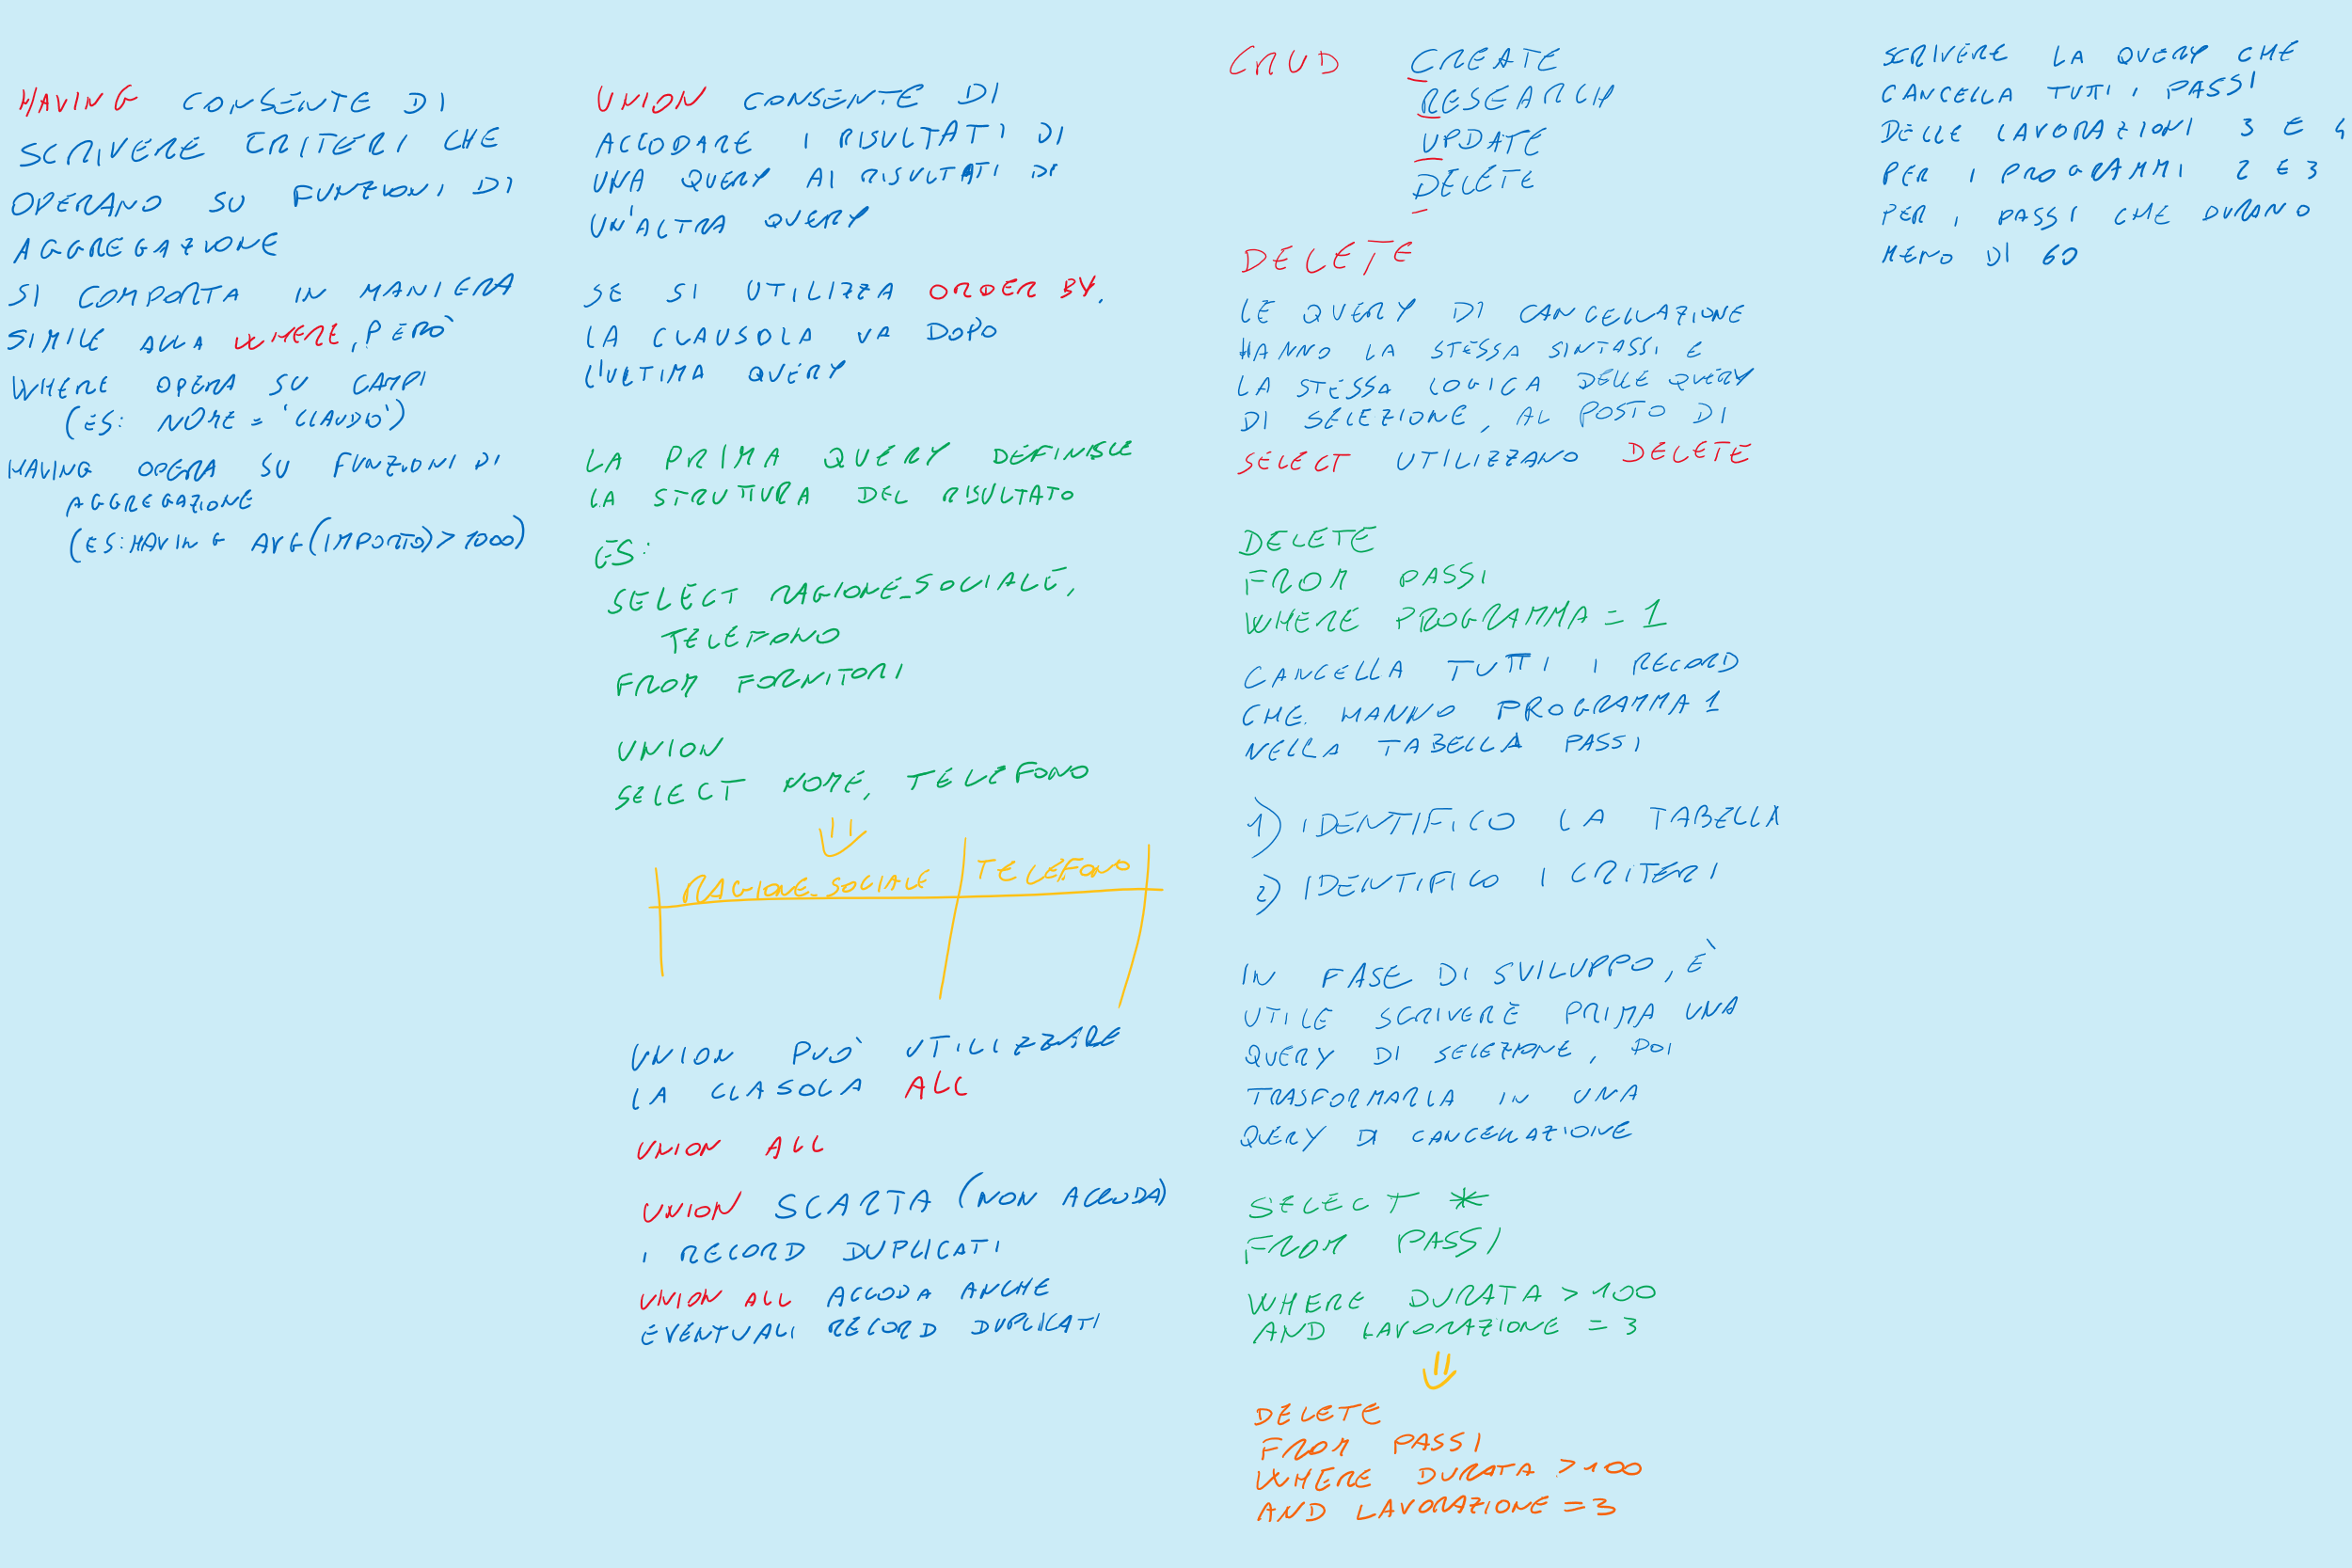 HAVING CONSENTE DI
SCRIVERE CRITERI CHE
OPERANO SU FUNZIONI DI
AGGREGAZIONE
SI COMPORTA IN MANIERA
SIMILE ALLA WHERE, PERÒ
WHERE OPERA SU CAMPI
(ES: NOME = 'CLAUDIO')
HAVING OPERA SU FUNZIONI DI
AGGREGAZIONE
(ES: HAVING AVG(IMPORTO) > 1000)
UNION CONSENTE DI
ACCODARE I RISULTATI DI
UNA QUERY AI RISULTATI DI
UN'ALTRA QUERY
SE SI UTILIZZA ORDER BY,
LA CLAUSOLA VA DOPO
L'ULTIMA QUERY
LA PRIMA QUERY DEFINISCE
LA STRUTTURA DEL RISULTATO
ES:
SELECT RAGIONE_SOCIALE,
TELEFONO
FROM FORNITORI
UNION
SELECT NOME, TELEFONO
RAGIONE_SOCIALE TELEFONO
UNION PUÒ UTILIZZARE
LA CLASOLA ALL
UNION ALL
UNION SCARTA (NON ACCODA)
I RECORD DUPLICATI
UNION ALL ACCODA ANCHE
EVENTUALI RECORD DUPLICATI
CRUD CREATE
RESEARCH
UPDATE
DELETE
DELETE
LE QUERY DI CANCELLAZIONE
HANNO LA STESSA SINTASSI E
LA STESSA LOGICA DELLE QUERY
DI SELEZIONE, AL POSTO DI
SELECT UTILIZZANO DELETE
DELETE
FROM PASSI
WHERE PROGRAMMA = 1
CANCELLA TUTTI I RECORD
CHE HANNO PROGRAMMA 1
NELLA TABELLA PASSI
1) IDENTIFICO LA TABELLA
2) IDENTIFICO I CRITERI
IN FASE DI SVILUPPO, È
UTILE SCRIVERE PRIMA UNA
QUERY DI SELEZIONE, POI
TRASFORMARLA IN UNA
QUERY DI CANCELLAZIONE
SELECT *
FROM PASSI
WHERE DURATA > 100
AND LAVORAZIONE = 3
DELETE
FROM PASSI
WHERE DURATA > 100
AND LAVORAZIONE = 3
SCRIVERE LA QUERY CHE
CANCELLA TUTTI I PASSI
DELLE LAVORAZIONI 3 E 4
PER I PROGRAMMI 2 E 3
PER I PASSI CHE DURANO
MENO DI 60